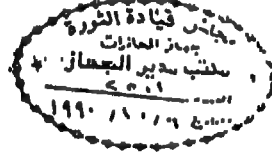 مجلس قيادة الثورة
جهاز المخابرات
مكتب مدير الجهاز
العدد
تاريخ / ١٠ / ١٩٩٠